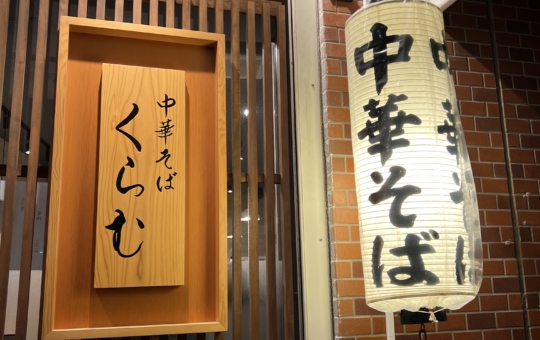 中華そば
くらむ
中華そば
中華そば